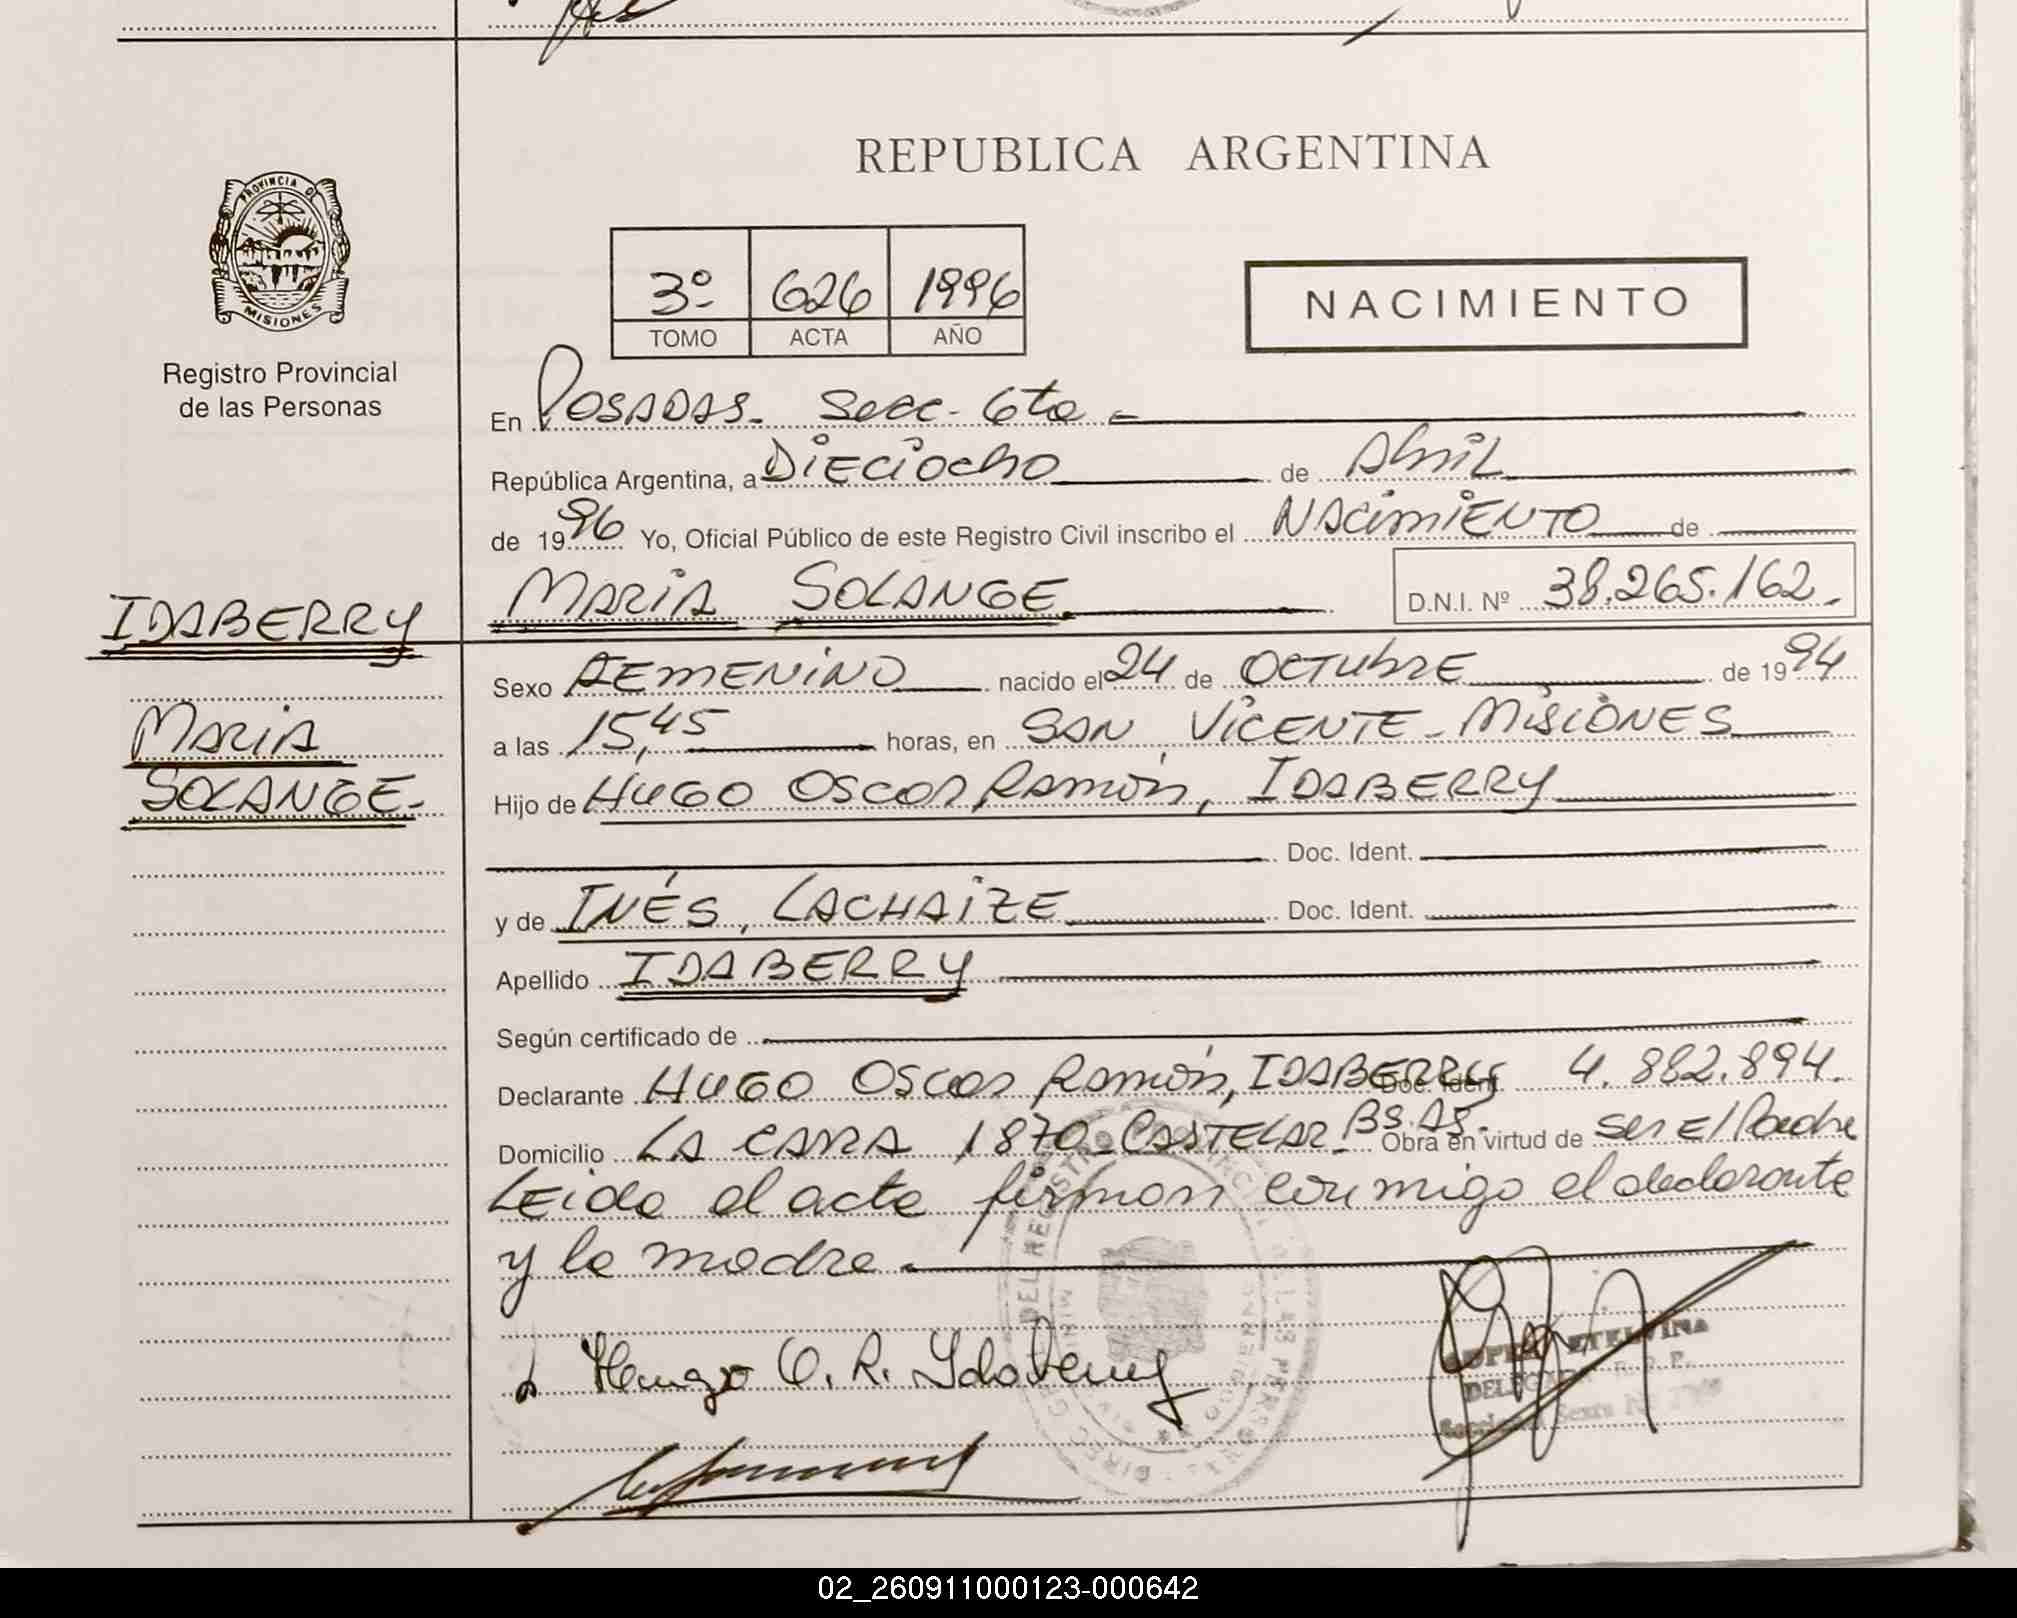 REPUBLICA ARGENTINA
PROVINCIA DE
MISIONES
Registro Provincial
de las Personas
3º 626 1996
TOMO ACTA AÑO
NACIMIENTO
En Posadas - Secc. 6ta -
República Argentina, a Dieciocho de Abril
de 1996 Yo, Oficial Público de este Registro Civil inscribo el Nacimiento de
IDABERRY
MARIA SOLANGE D.N.I. Nº 38.265.162.
MARIA
SOLANGE.
Sexo FEMENINO nacido el 24 de OCTUbRE de 1994
a las 15,45 horas, en SAN VICENTE - MISIONES
Hijo de HUGO OSCAR Ramón, IDABERRY
Doc. Ident.
y de INÉS, LACHAIZE Doc. Ident.
Apellido IDABERRY
Según certificado de
Declarante HUGO OSCAR Ramón, IDABERRY Doc. Ident. 4.882.894.
Domicilio LA CAnA 1870 - CASTELAR - BS.AS. Obra en virtud de ser El Padre
LEida el acta firman conmigo el declarante
y la madre.
Hugo O. R. Idaberry
ETELVINA